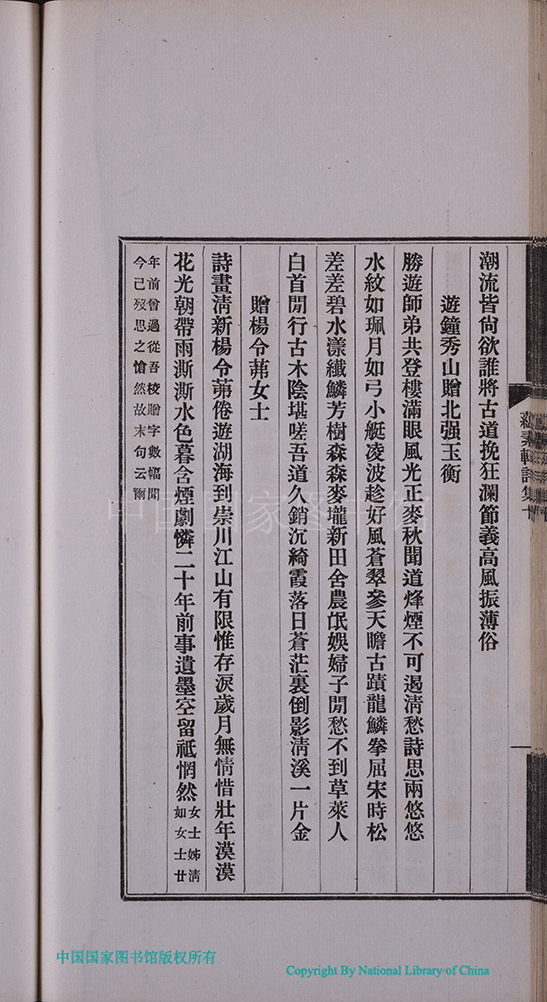 潮流皆尙欲誰將古道挽狂瀾節義高風振薄俗
遊鐘秀山贈北强玉衡
勝遊師弟共登樓滿眼風光正麥秋聞道烽煙不可遏淸愁詩思兩悠悠
水紋如珮月如弓小艇凌波趁好風蒼翠參天瞻古蹟龍鱗拳屈宋時松
差差碧水漾纖鱗芳樹森森麥壠新田舍農氓娛婦子閒愁不到草萊人
白首閒行古木陰堪嗟吾道久銷沉綺霞落日蒼茫裏倒影淸溪一片金
贈楊令茀女士
詩畫淸新楊令茀倦遊湖海到崇川江山有限惟存淚歲月無情惜壯年漠漠
花光朝帶雨澌澌水色暮含煙劇憐二十年前事遺墨空留祗惘然女士姊淸
如女士廿
年前曾過從吾校贈字數幅聞
今已歿思之愴然故末句云爾
素軒詩集十
中国国家图书馆版权所有
Copyright By National Library of China